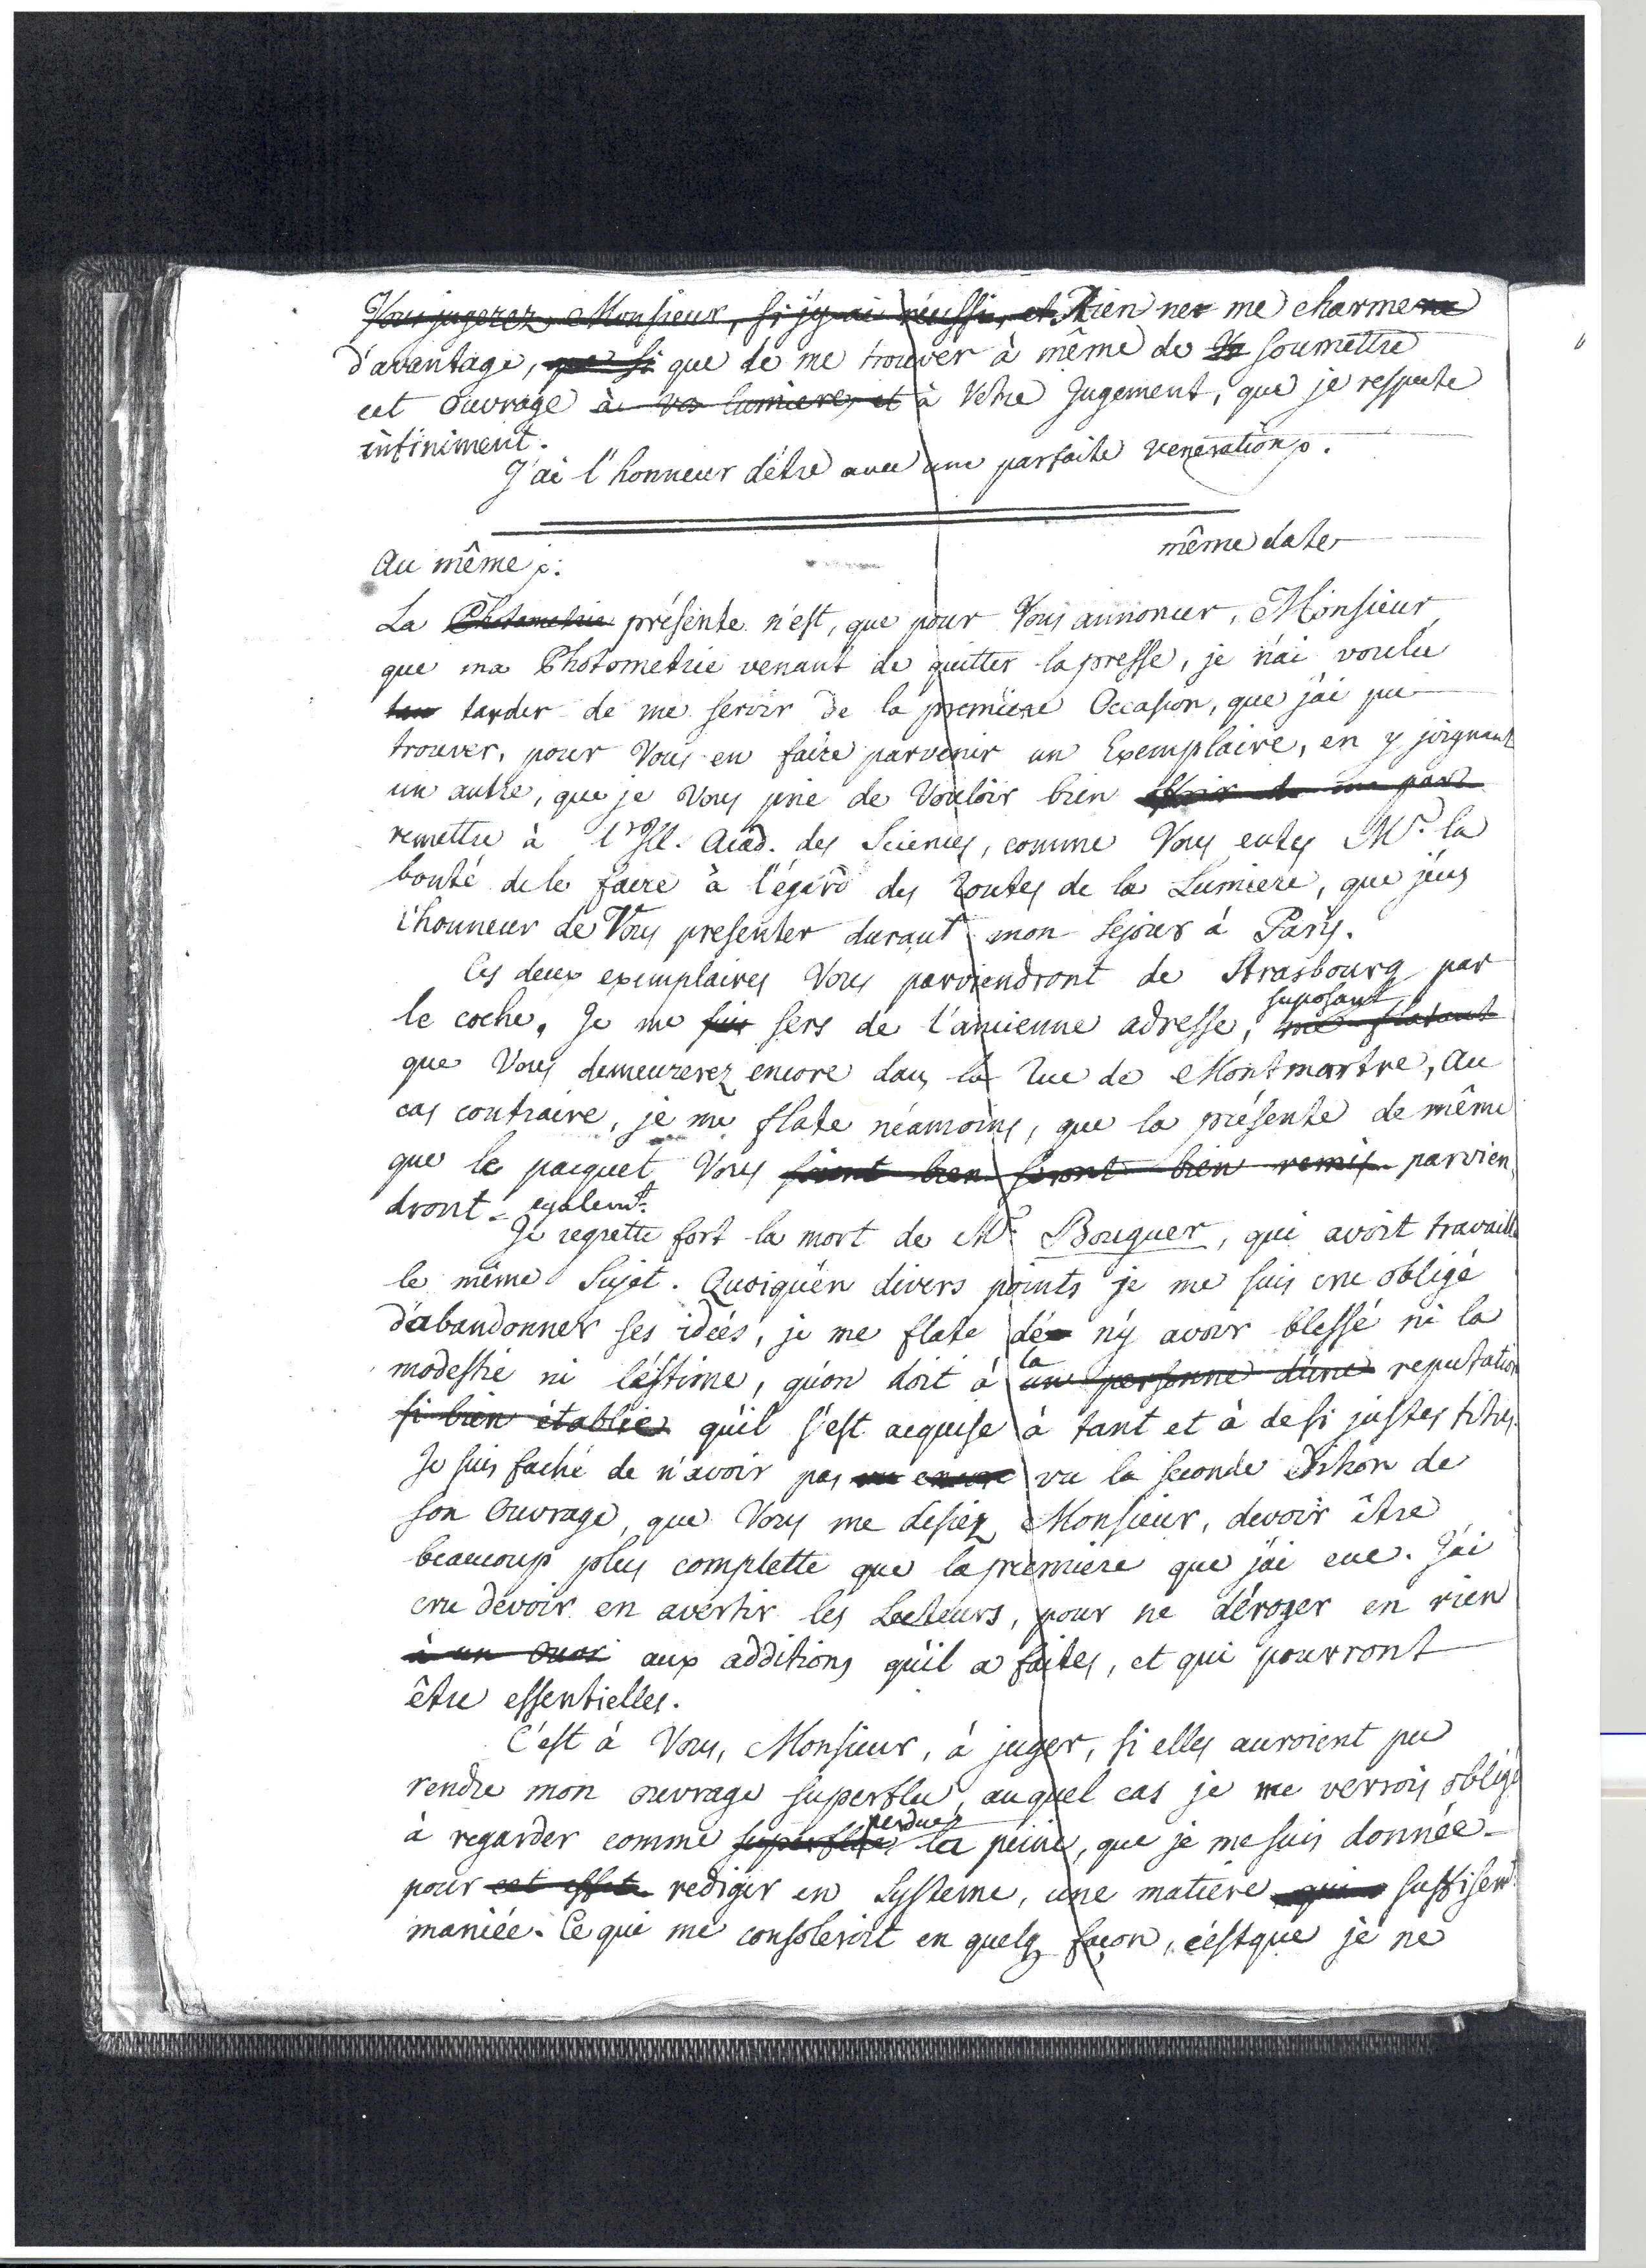 Vous jugerez, Monsieur, si j'y ai réussi, et Rien ne me charmera
d'avantage, que si que de me trouver à même de soumettre
cet ouvrage à vos lumieres, et à Votre Jugement, que je respecte
infiniment.
J'ai l'honneur d'être avec une parfaite veneration p.
Au même p:
même date
La Photometrie présente n'est, que pour Vous annoncer, Monsieur
que ma Photometrie venant de quitter la presse, je n'ai voulu
tan tarder de me servir de la premiere Occasion, que j'ai pu
trouver, pour Vous en faire parvenir un Exemplaire, en y joignant
un autre, que je Vous prie de Vouloir bien offrir de ma part
remettre à l'Ill. Acad. des Sciences, comme Vous eutes Mr. la
bonté de le faire à l'égard des routes de la Lumiere, que j'eus
l'honneur de Vous presenter durant mon sejour à Paris.
Ces deux exemplaires Vous parviendront de Strasbourg par
le coche. Je me suis sers de l'ancienne adresse, suposant me flatant
que Vous demeurerez encore dans la rue de Montmartre, Au
cas contraire, je me flate néamoins, que la présente de même
que le pacquet Vous soient bien seront bien remis parvien
dront egalemt.
Je regrette fort la mort de Mr Bouguer, qui avoit travaillé
le même Sujet. Quoiqu'en divers points je me suis cru obligé
d'abandonner ses idées, je me flate de n'y avoir blessé ni la
modestie ni l'estime, qu'on doit à la un personne d'une reputation
si bien établie qu'il s'est acquise à tant et à de si justes titres.
Je suis faché de n'avoir pas vu encore vu la seconde Edition de
son Ouvrage, que Vous me disiez Monsieur, devoir être
beaucoup plus complette que la premiere que j'ai eue. J'ai
cru devoir en avertir les Lecteurs, pour ne déroger en rien
à un ouvr aux additions qu'il a faites, et qui pourront
être essentielles.
C'est à Vous, Monsieur, à juger, si elles auroient pu
rendre mon ouvrage superflu, auquel cas je me verrois obligé
à regarder comme superflue perdue la peine, que je me suis donnée
pour cet effet rediger en Systeme, une matiere qui suffisemt
maniée. Ce qui me consoleroit en quelq façon, c'est que je ne